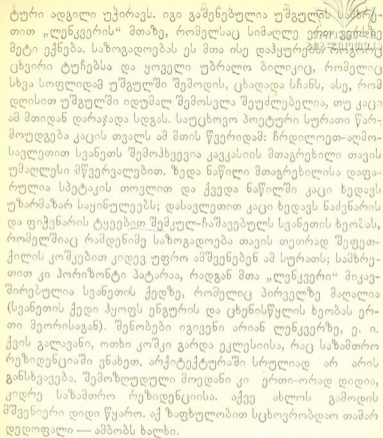 ტური ადგილი უჭირავს. იგი გაშენებულია უშგულის სამხრე-
თით „ლენკვერის“ მთაზე, რომელსაც სიმაღლე ერთ ვერსზე
მეტი ექნება. საზოგადოებას ეს მთა ისე დაჰყურებს, როგორც
ცხვირი ტუჩებსა და ყოველი უბრალო ბილიკიც, რომელიც
სხვა სოფლიდამ უშგულში შემოდის, ცხადადა სჩანს, ასე, რომ
დღისით უშგულში იდუმალ შემოსვლა შეუძლებელია, თუ კაცი
ამ მთიდან დარაჯადა სდგას. საუცხოვო პოეტური სურათი წარ-
მოუდგება კაცის თვალს ამ მთის წვერიდამ: ჩრდილოეთ-აღმო-
სავლეთით სვანეთს შემოჰხვევია კავკასიის მთაგრეხილი თავის
უმაღლესი მწვერვალებით. ზედა ნაწილი მთაგრეხილისა დაფა-
რულია სპეტაკის თოვლით და ქვედა ნაწილში კაცი ხედავს
უზარმაზარ საყინულეებს; დასავლეთით კაცი ხედავს ნაძვნარის
და ფიჭვნარის ტყეებით შემკულ-ჩაშავებულს სვანეთის ხეობას,
რომელშიაც რამდენიმე საზოგადოება თავის თეთრად შეფეთ-
ქილის კოშკებით კიდევ უფრო ამშვენებენ ამ სურათს; სამხრე-
თით კი ჰორიზონტი პატარაა, რადგან მთა „ლენკვერი“ მიკავ-
შირებულია სვანეთის ქედზე, რომელიც პირველზე მაღალია
(სვანეთის ქედი ჰყოფს ენგურის და ცხენისწყლის ხეობას ერ-
თი მეორისაგან). შენობები იგივენი არიან ლენკვერზე, ე. ი.
ქვის გალავანი, ოთხი კოშკი გარდა ეკლესიისა, რაც საზამთრო
რეზიდენციაში ვნახეთ. არქიტექტურაში სრულიად არ არის
განსხვავება. შემოზღუდული მოედანი კი ერთი-ორად დიდია,
კიდრე საზამთრო რეზიდენციისა. აქვე ახლოს გამოდის
მშვენიერი დიდი წყარო. აქ ზაფხულობით სცხოვრობდაო თამარ
დედოფალი — ამბობს ხალხი.